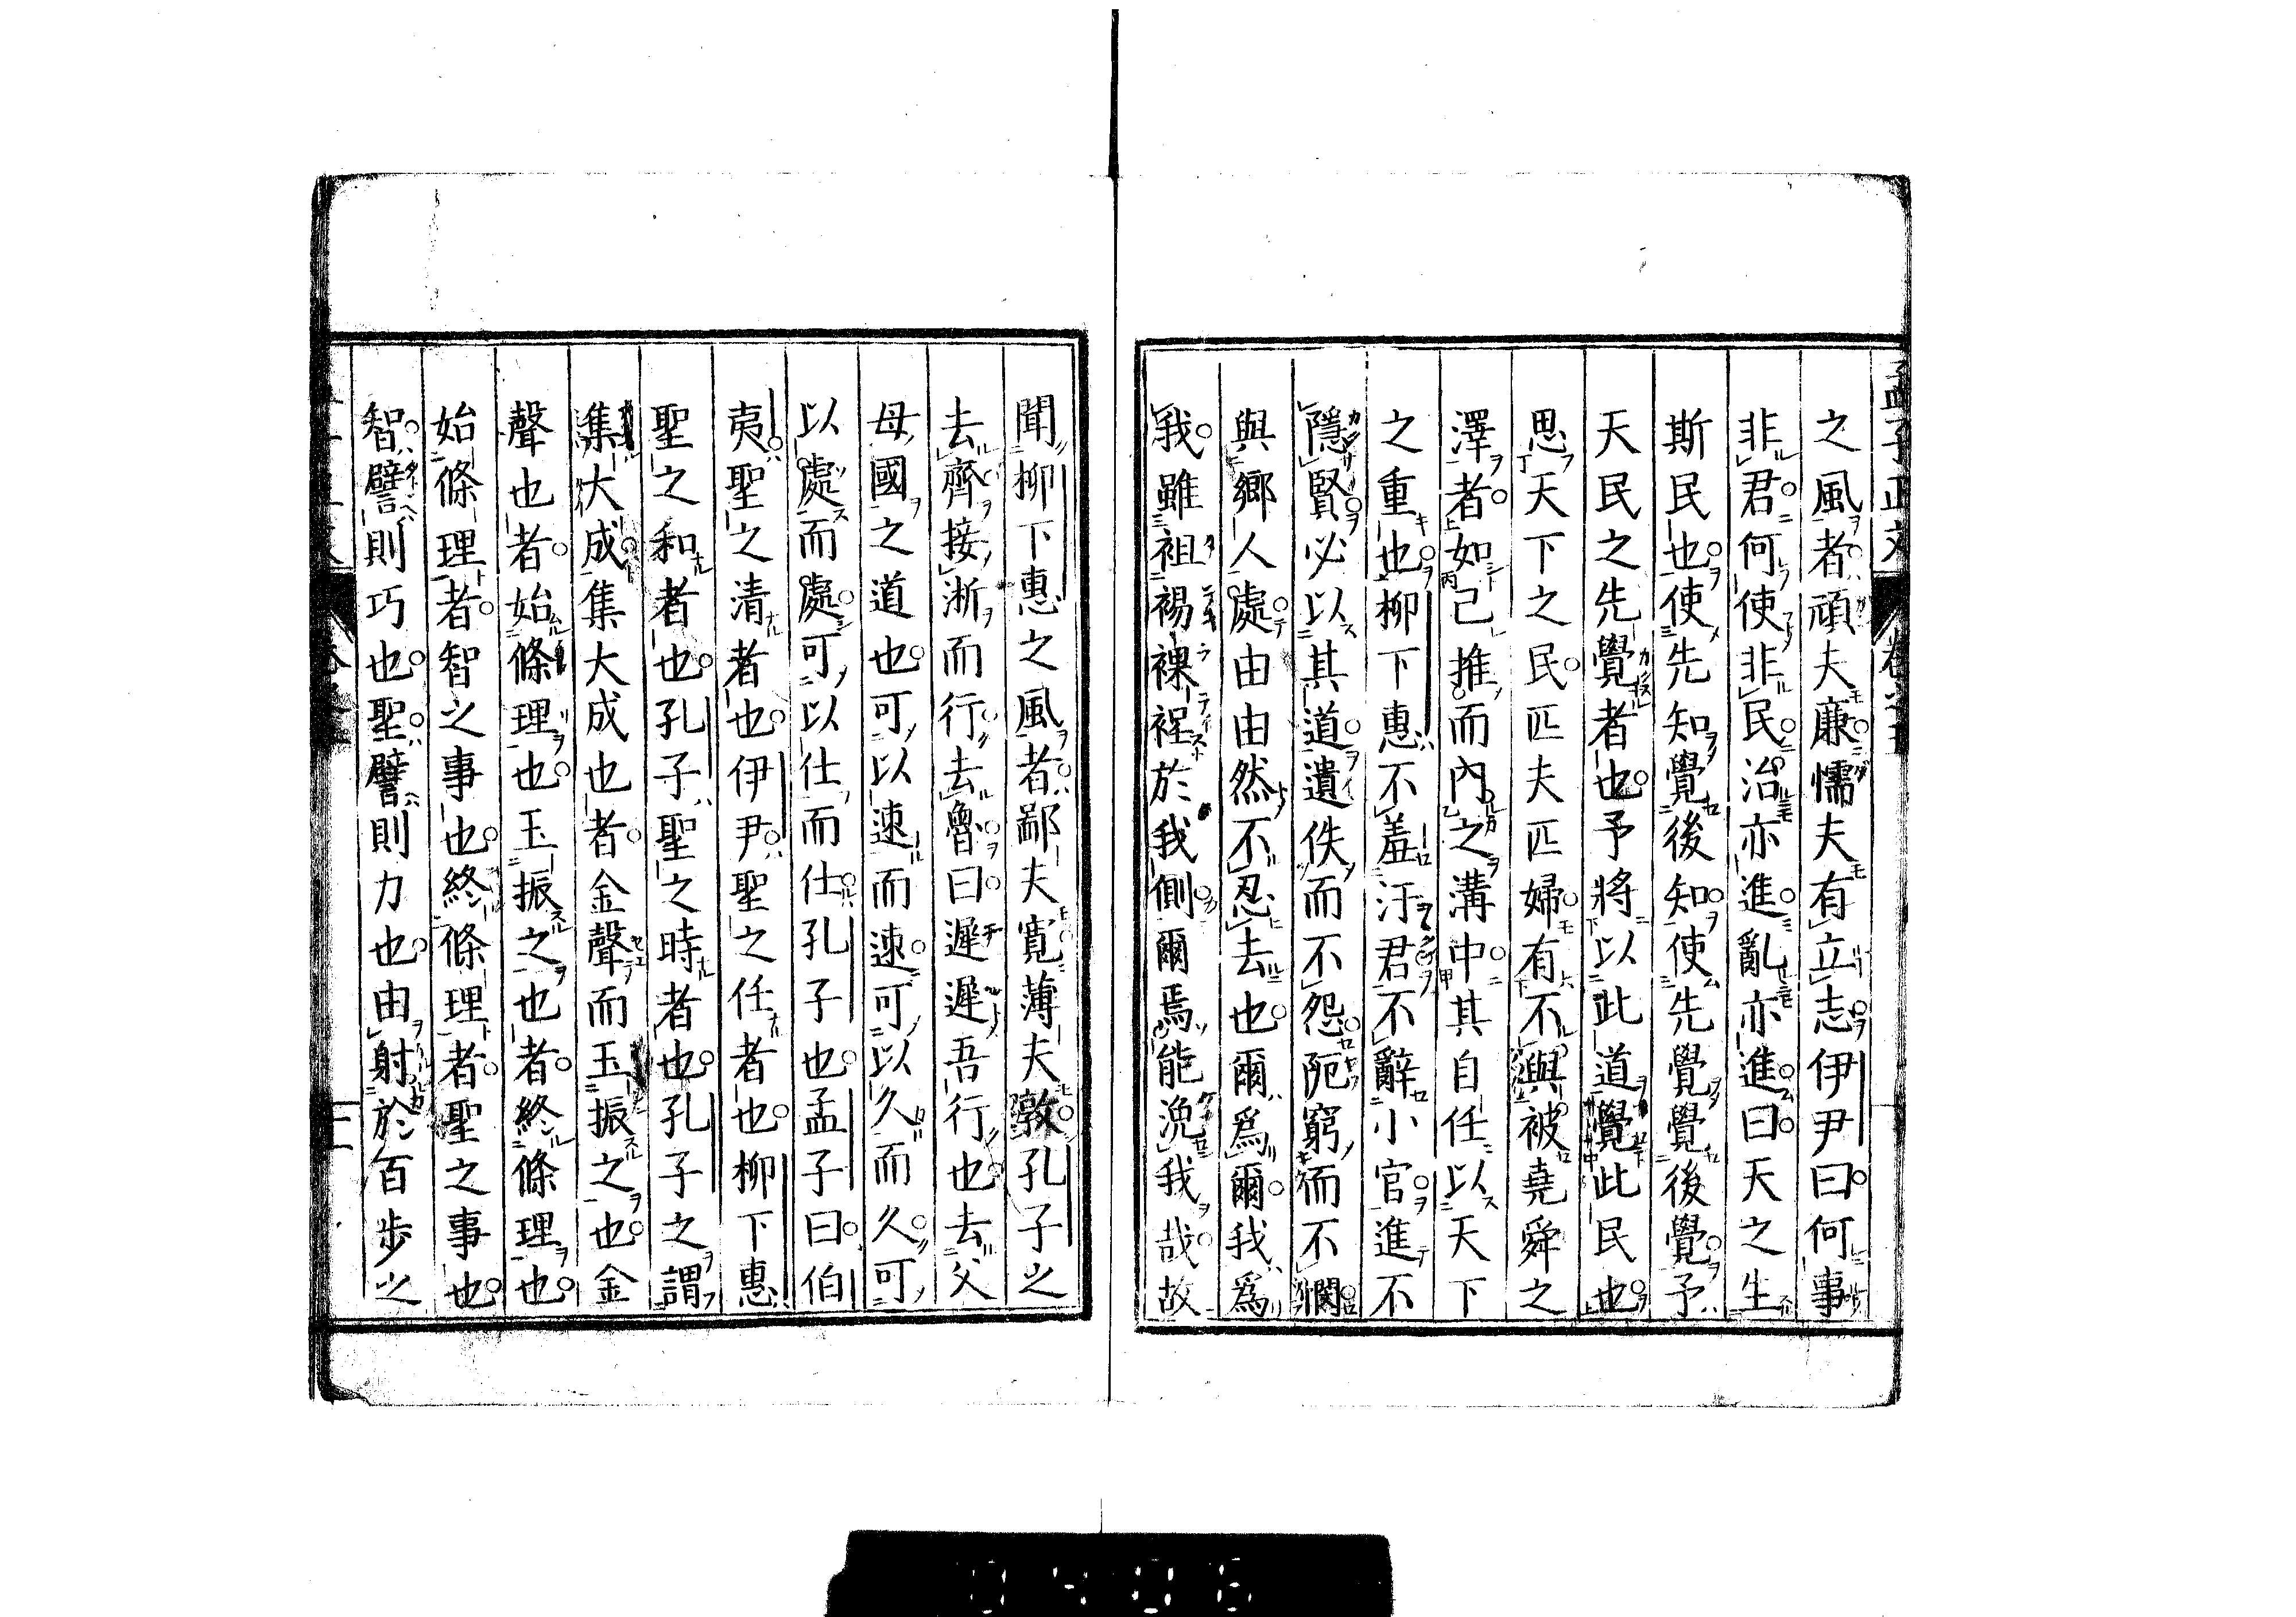 孟子正文 卷之五
之風者頑夫廉懦夫有立志伊尹曰何事
非君何使非民治亦進亂亦進曰天之生
斯民也使先知覺後知使先覺覺後覺予
天民之先覺者也予將以此道覺此民也
思天下之民匹夫匹婦有不與被堯舜之
澤者如己推而內之溝中其自任以天下
之重也柳下惠不羞汙君不辭小官進不
隱賢必以其道遺佚而不怨阨窮而不憫
與鄉人處由由然不忍去也爾爲爾我爲
我雖袒裼裸裎於我側爾焉能浼我哉故
聞柳下惠之風者鄙夫寬薄夫敦孔子之
去齊接淅而行去魯曰遲遲吾行也去父
母國之道也可以速而速可以久而久可
以處而處可以仕而仕孔子也孟子曰伯
夷聖之清者也伊尹聖之任者也柳下惠
聖之和者也孔子聖之時者也孔子之謂
集大成集大成也者金聲而玉振之也金
聲也者始條理也玉振之也者終條理也
始條理者智之事也終條理者聖之事也
智譬則巧也聖譬則力也由射於百步之